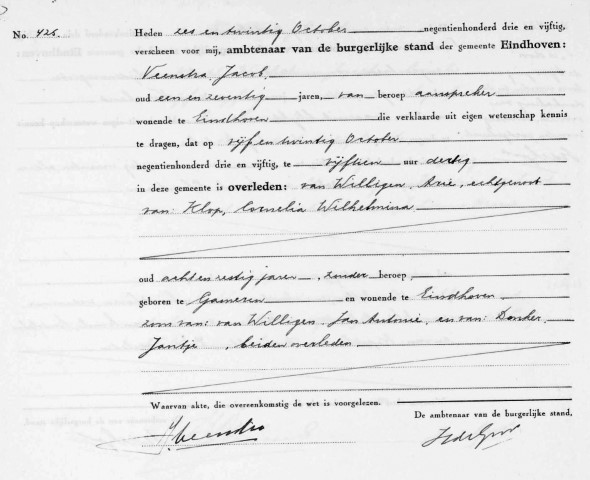 No. 426. Heden zes en twintig October negentienhonderd drie en vijftig,
verscheen voor mij, ambtenaar van de burgerlijke stand der gemeente Eindhoven:
Veenstra, Jacob
oud een en zeventig jaren, van beroep aanspreker
wonende te Eindhoven die verklaarde uit eigen wetenschap kennis
te dragen, dat op vijf en twintig October
negentienhonderd drie en vijftig, te vijftien uur dertig
in deze gemeente is overleden: van Willigen, Arie, echtgenoot
van: Klop, Cornelia Wilhelmina
oud acht en zestig jaren, zonder beroep
geboren te Gameren en wonende te Eindhoven
zoon van: van Willigen, Jan Antonie, en van: Donker,
Jantje, beiden overleden
Waarvan akte, die overeenkomstig de wet is voorgelezen.
De ambtenaar van de burgerlijke stand,
J. Veenstra